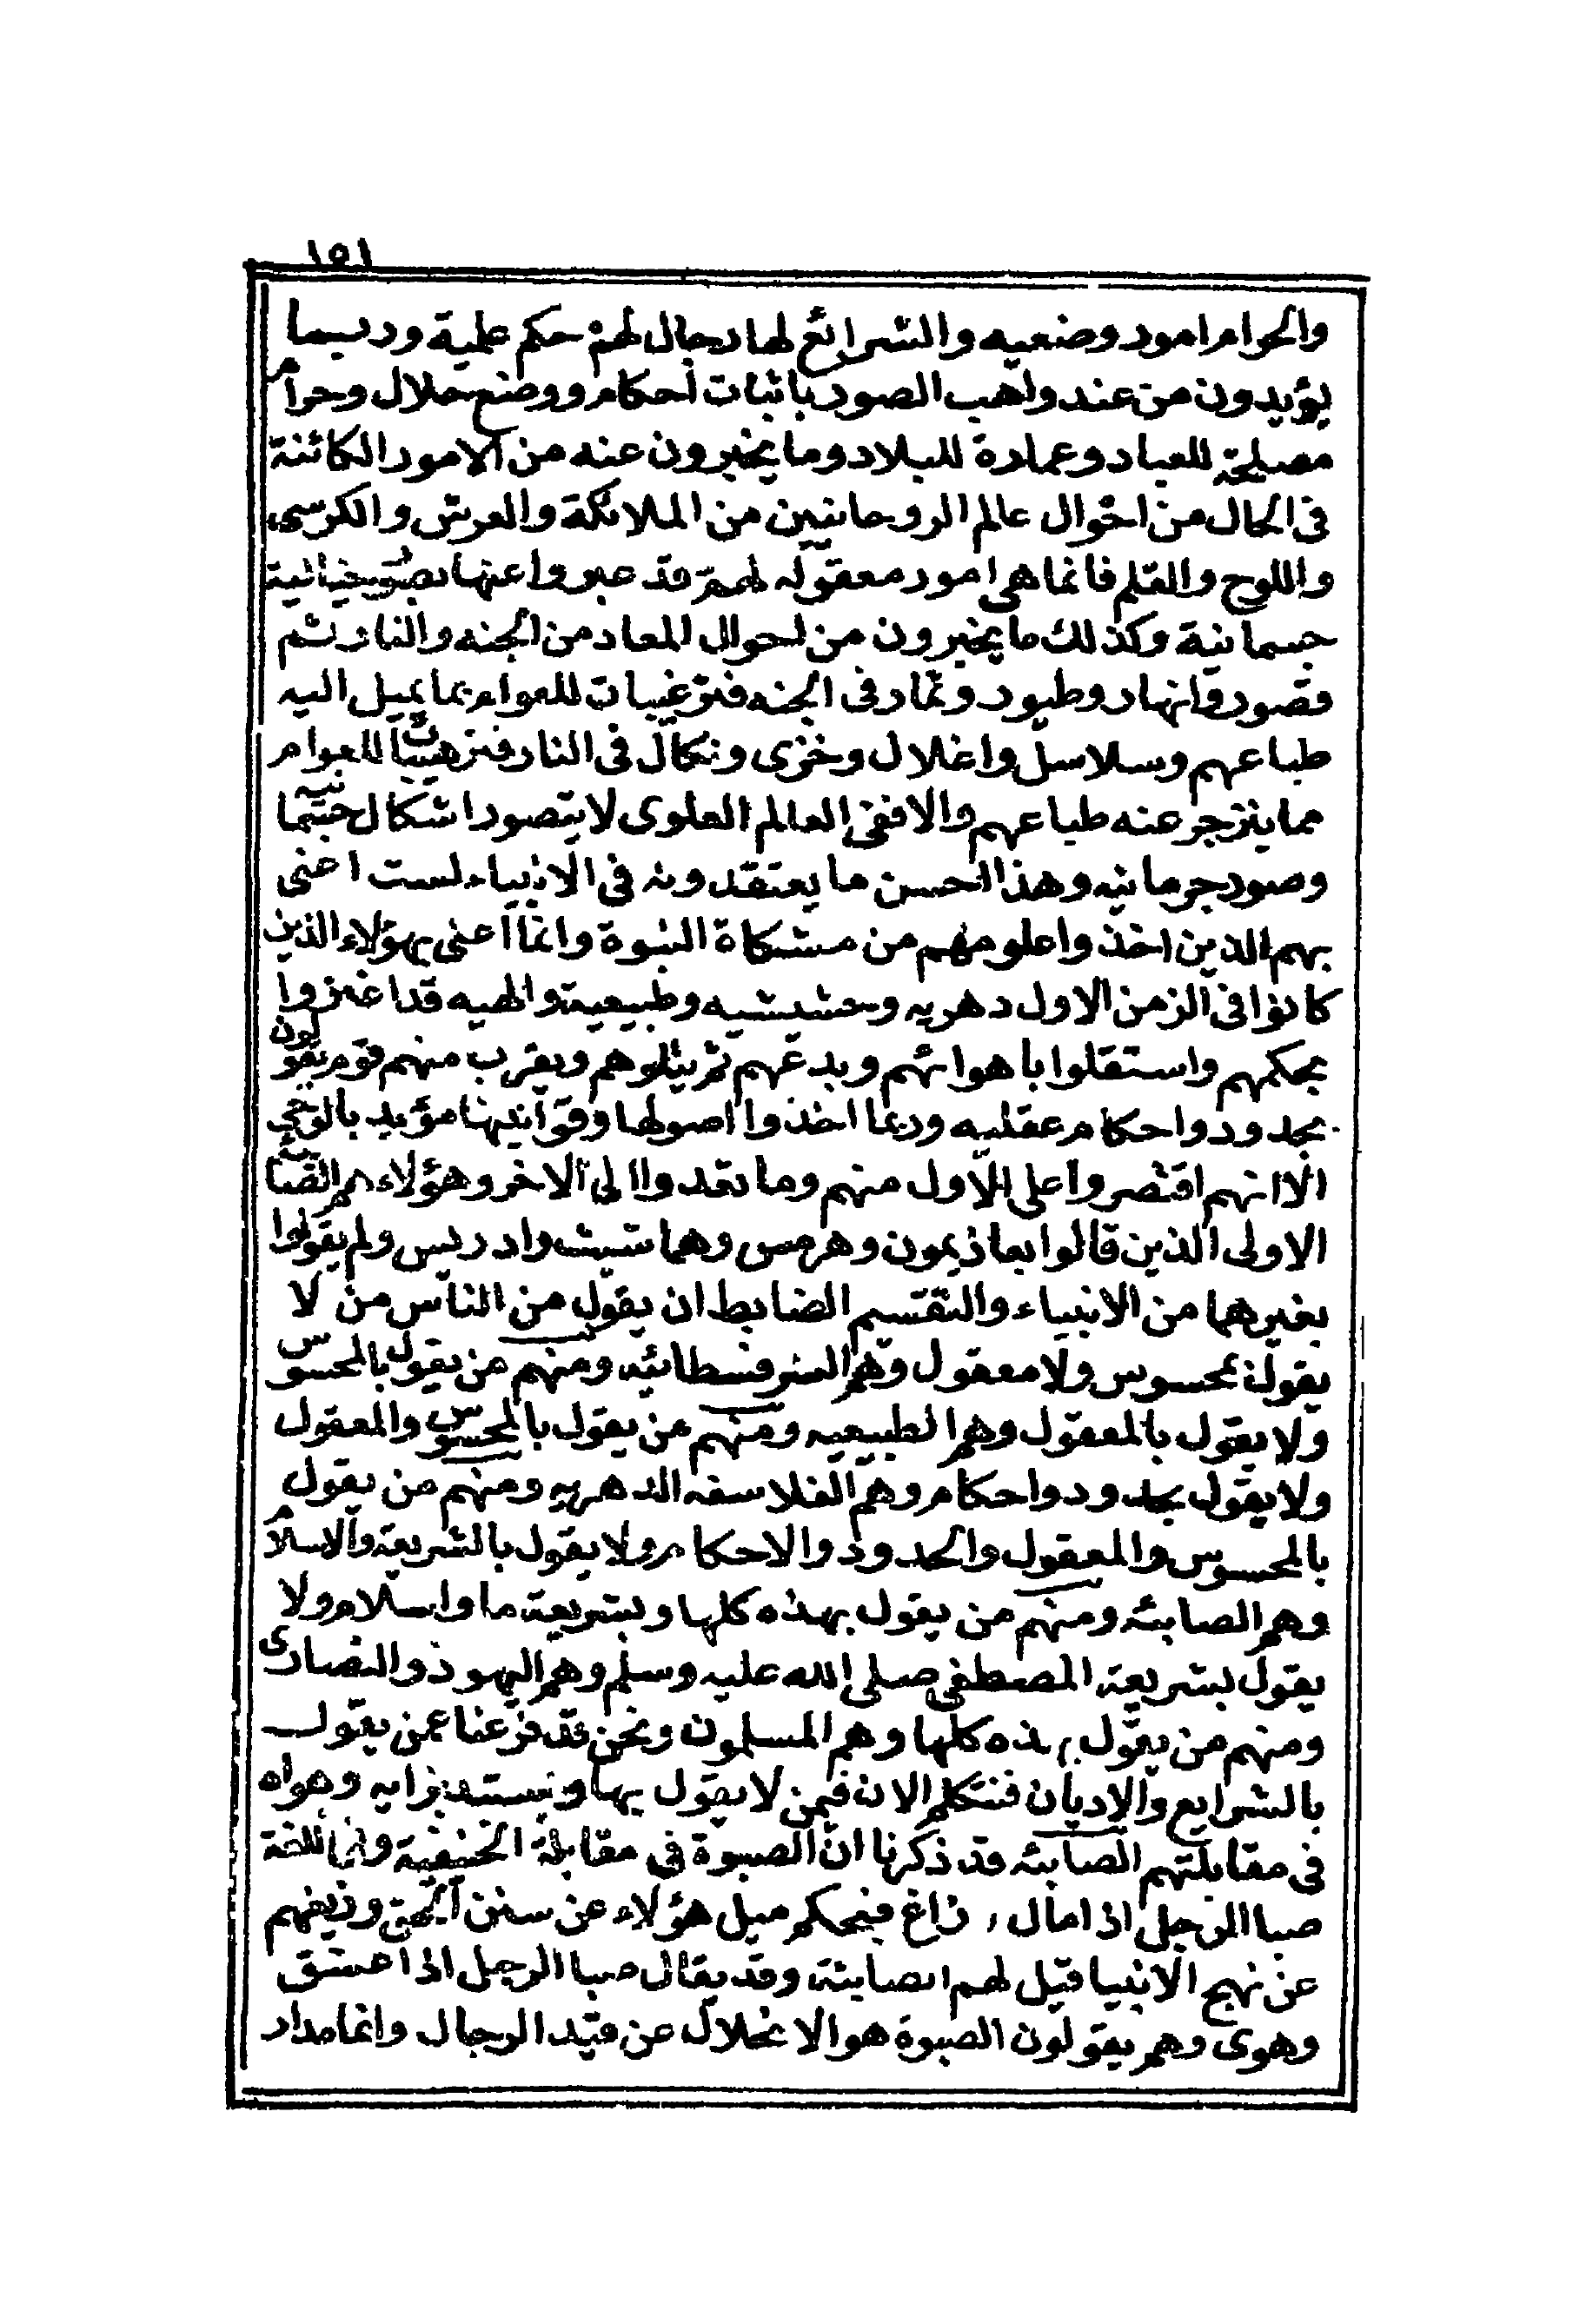 ١٥١
والحرام امور وضعيه والشرائع لها رجال لهم حكم علمية وربما
يؤيدون من عند واهب الصور باثبات احكام ووضع حلال وحرام
مصلحة للعباد وعمارة للبلاد وما يخبرون عنه من الامور الكائنة
فى الحال من احوال عالم الروحانيين من الملائكة والعرش والكرسى
واللوح والقلم فانما هى امور معقوله لهم قد عبروا عنها بصور خيالية
جسمانية وكذلك ما يخبرون من احوال المعاد من الجنه والنار ثم
قصور وانهار وطيور وثمار فى الجنه فترغيبات للعوام بما يميل اليه
طباعهم وسلاسل واغلال وخزى ونكال فى النار فترهيبات للعوام
مما ينزجر عنه طباعهم والا ففى العالم العلوى لا يتصور اشكال جسمانيه
وصور جرمانيه وهذا احسن ما يعتقدونه فى الانبياء لست اعنى
بهم الذين اخذوا علومهم من مشكاة النبوة وانما اعنى بهؤلاء الذين
كانوا فى الزمن الاول دهريه وحشيشيه وطبيعية والهيه قد اغتروا
بحكمهم واستقلوا باهوائهم وبدعهم ثم يتلوهم ويقرب منهم قوم يقولون
بحدود واحكام عقليه وربما اخذوا اصولها وقوانينها مؤيد بالوحى
الا انهم اقتصروا على الاول منهم وما تعدوا الى الاخر وهؤلاء هم الصابئه
الاولى الذين قالوا بعاذيمون وهرمس وهما شيث وادريس ولم يقولوا
بغيرهما من الانبياء والتقسيم الضابط ان يقول من الناس من لا
يقول بمحسوس ولا معقول وهم السوفسطائيه ومنهم من يقول بالمحسوس
ولا يقول بالمعقول وهم الطبيعيه ومنهم من يقول بالمحسوس والمعقول
ولا يقول بحدود واحكام وهم الفلاسفه الدهريه ومنهم من يقول
بالمحسوس والمعقول والحدود والاحكام ولا يقول بالشريعة والاسلام
وهم الصابئه ومنهم من يقول بهذه كلها وبشريعة ما واسلام ولا
يقول بشريعة المصطفى صلى الله عليه وسلم وهم اليهود والنصارى
ومنهم من يقول بهذه كلها وهم المسلمون ونحن قد فرغنا عمن يقول
بالشرايع والاديان فنتكلم الان فيمن لا يقول بها ويستبد برايه وهواه
فى مقابلتهم الصابئه قد ذكرنا ان الصبوة فى مقابلة الحنيفية وفى اللغة
صبا الرجل اذا مال وزاغ فبحكم ميل هؤلاء عن سنن الحق وزيغهم
عن نهج الانبيا قيل لهم الصابئة وقد يقال صبا الرجل اذا عشق
وهوى وهم يقولون الصبوة هو الانحلال عن قيد الرجال وانما مدار